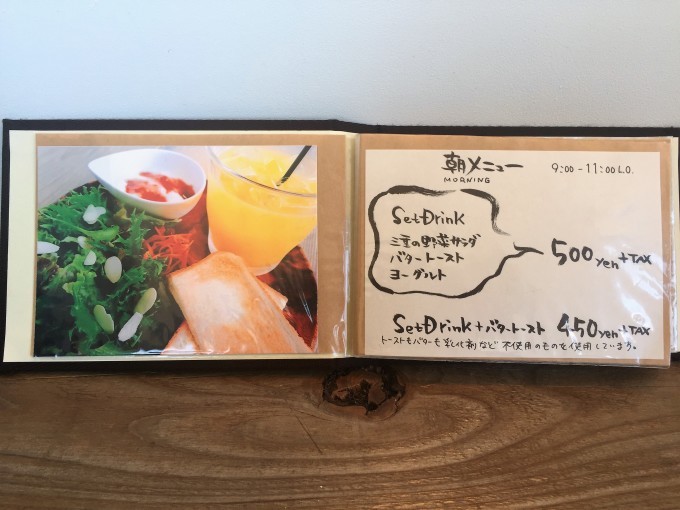 朝メニュー 9:00-11:00 L.O.
MORNING
SetDrink
三重の野菜サラダ
バタートースト
ヨーグルト
500yen+TAX
SetDrink+バタートースト 450yen+TAX
トーストもバターも乳化剤など不使用のものを使用しています。